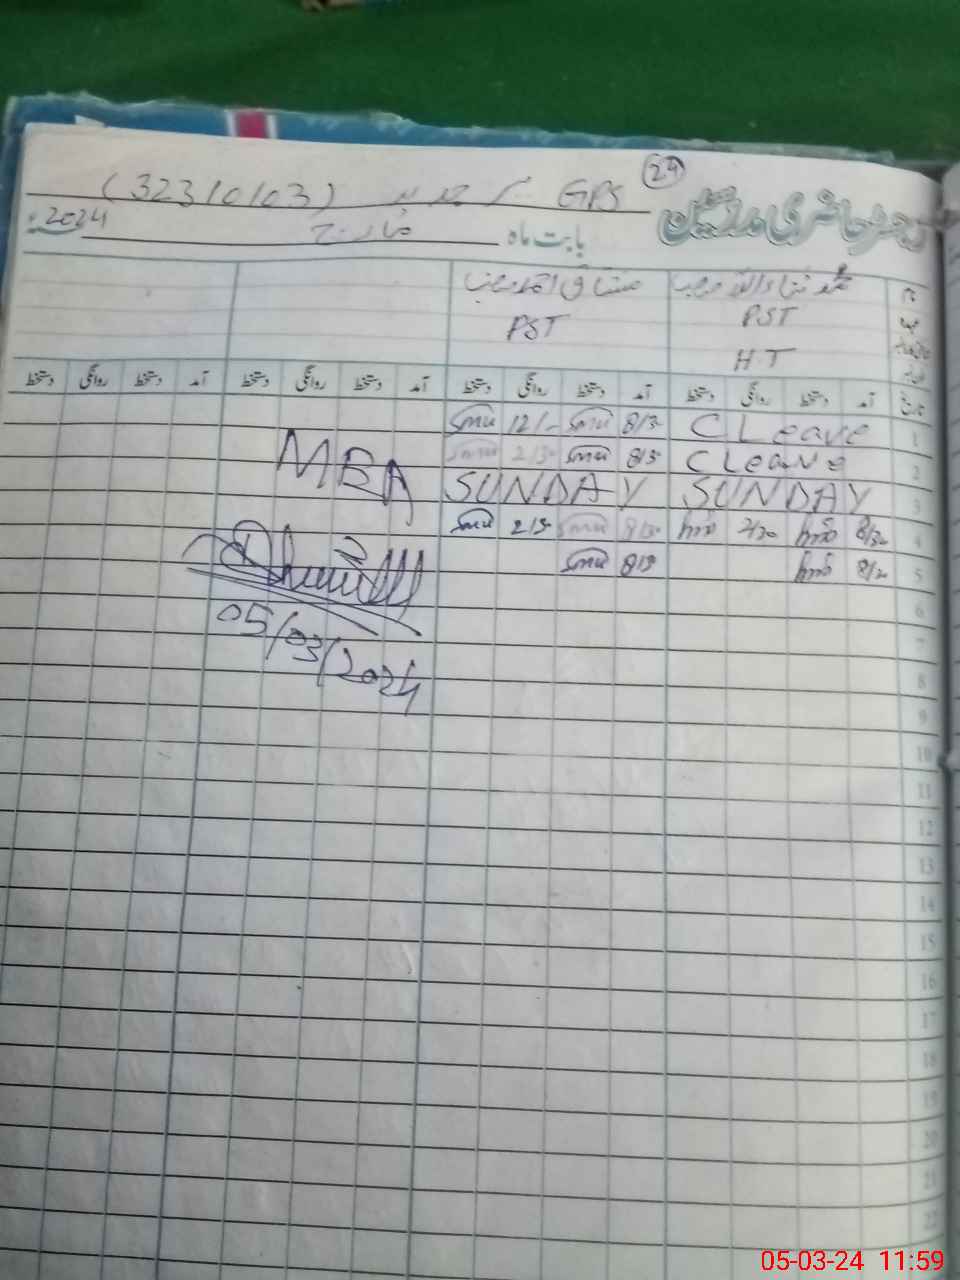 24
رجسٹر حاضری مدرسین GPS (32310103)
بابت ماہ مارچ 2024ء
نام محمد ثناء اللہ صاحب مشتاق احمد صاحب
PST PST
HT
تاریخ آمد دستخط روانگی دستخط آمد دستخط روانگی دستخط آمد دستخط روانگی دستخط آمد دستخط روانگی دستخط
1 C Leave 8/30 12/-
2 C Leave 8/30 2/30
3 SUNDAY SUNDAY
4 8/30 2/30 8/30 2/30
5 8/30 8/30
MEA
05/03/2024
6
7
8
9
10
11
12
13
14
15
16
17
18
19
20
21
22
05-03-24 11:59